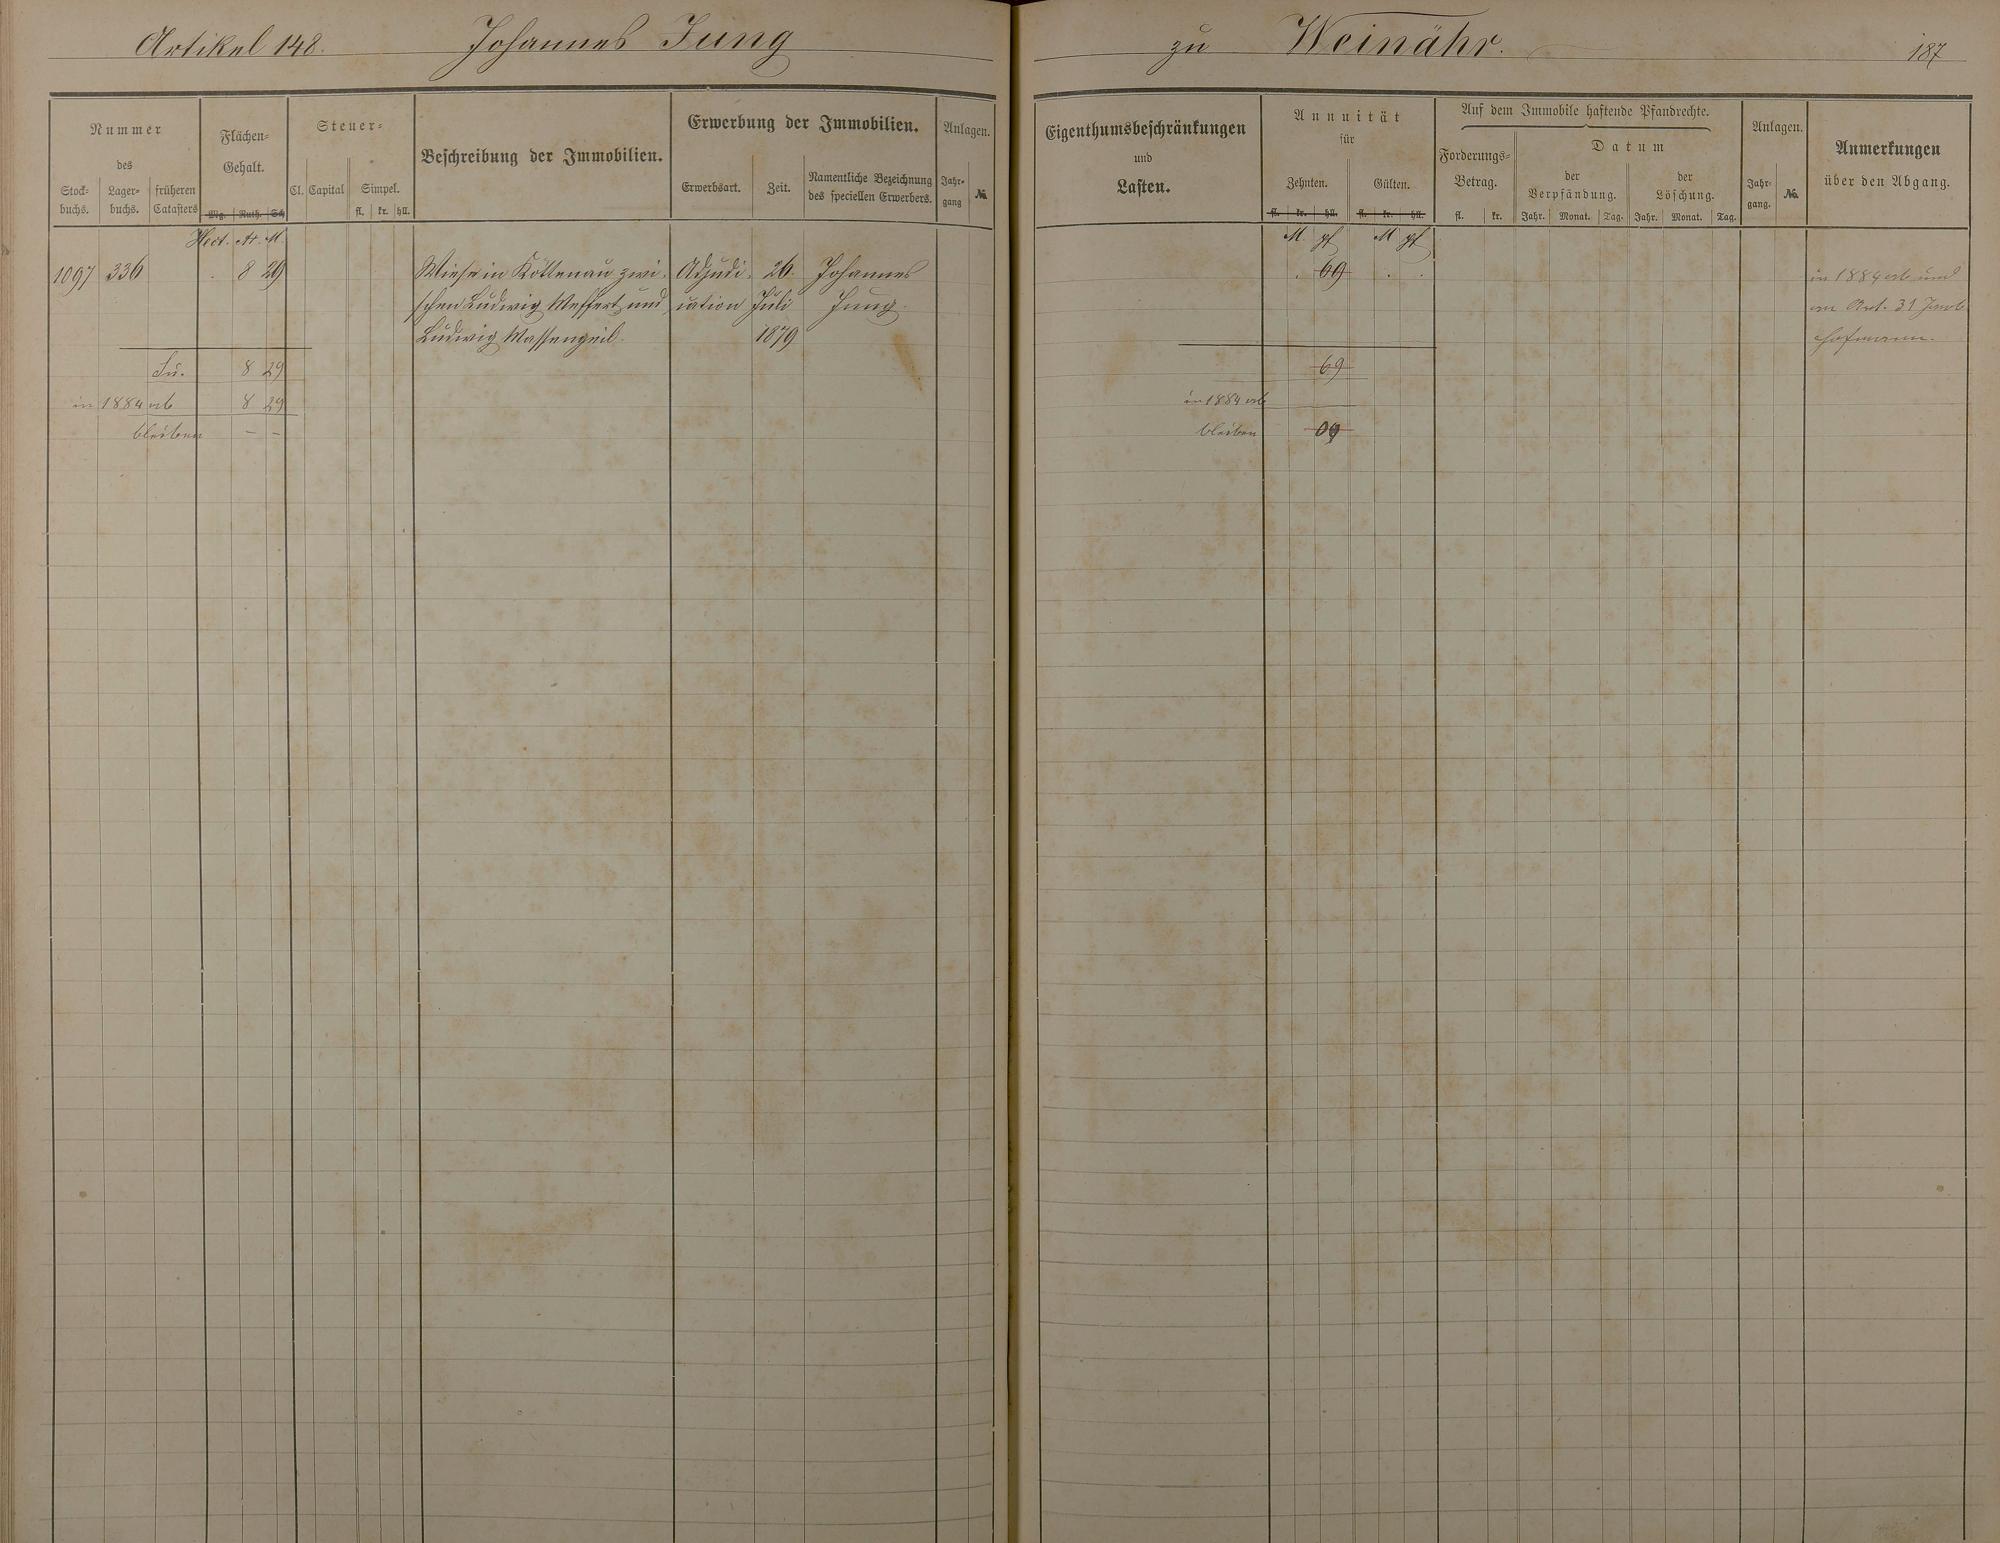 Artikel 148. Johannes Jung zu Weinähr. 187
Nummer
des
Stock-
buchs.
Lager-
buchs.
früheren
Catasters
Flächen-
Gehalt.
Mg. Ruth. Sch
Steuer-
Cl. Capital Simpel.
fl. kr. hll.
Beschreibung der Immobilien.
Erwerbung der Immobilien.
Erwerbsart. Zeit.
Namentliche Bezeichnung
des speciellen Erwerbers.
Anlagen.
Jahr-
gang
No.
Eigenthumsbeschränkungen
und
Lasten.
Annuität
für
Zehnten. Gülten.
fl. kr. hll. fl. kr. hll.
Auf dem Immobile haftende Pfandrechte.
Forderungs-
Betrag.
fl. kr.
Datum
der
Verpfändung.
Jahr. Monat. Tag.
der
Löschung.
Jahr. Monat. Tag.
Anlagen.
Jahr-
gang.
No.
Anmerkungen
über den Abgang.
Hect. Ar. M. M. pf M pf
1097 336 . 8 29 Wiese in Köttenau zwi- Adjudi- 26. Johannes . 69 . . in 1884 ab und
schen Ludwig Meffert und cation Juli Jung. an Art. 31 Jacob
Ludwig Massengeil. 1879 Hofmann.
Su. 8 29 69
in 1884 ab 8 29 in 1884 ab
bleiben – – bleiben